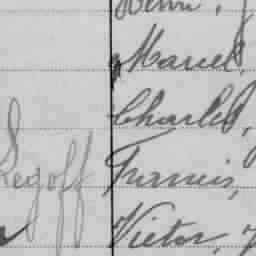 Henri,
Marcel,
Charles,
Legoff Francis,
Victor,